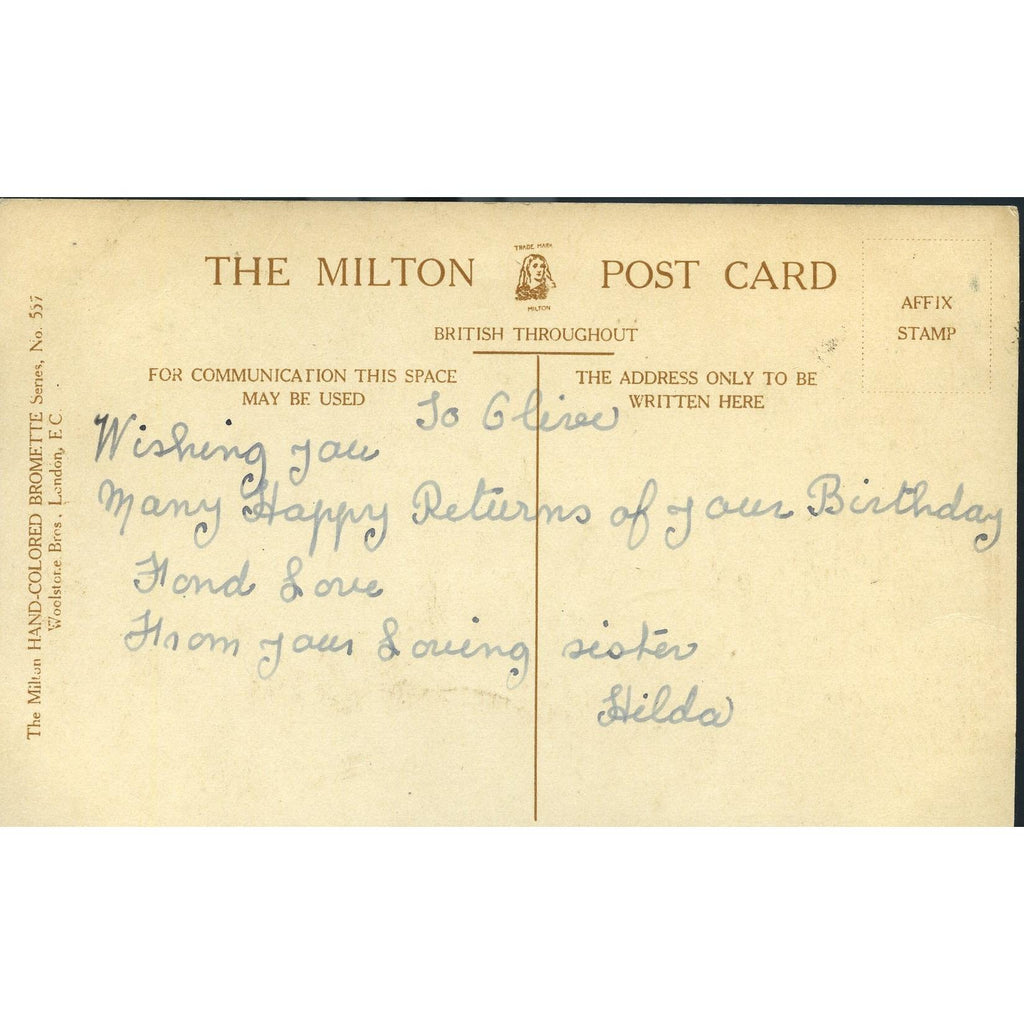 TRADE MARK
THE MILTON POST CARD
MILTON
BRITISH THROUGHOUT
AFFIX
STAMP
FOR COMMUNICATION THIS SPACE
MAY BE USED
THE ADDRESS ONLY TO BE
WRITTEN HERE
To Olive
Wishing you
Many Happy Returns of your Birthday
Fond Love
From your Loving sister
Hilda
The Milton HAND-COLORED BROMETTE Series, No. 557
Woolstone Bros., London, E.C.